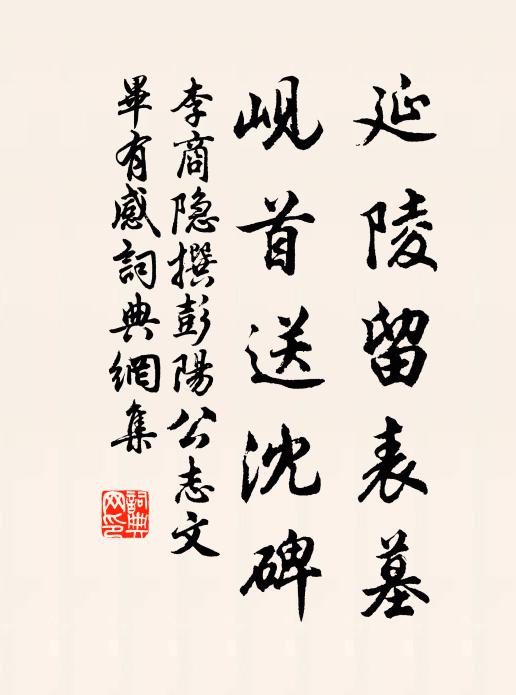 延陵留表墓
峴首送沈碑
李商隐撰彭陽公志文
畢有感詞典網集
詞典
网印